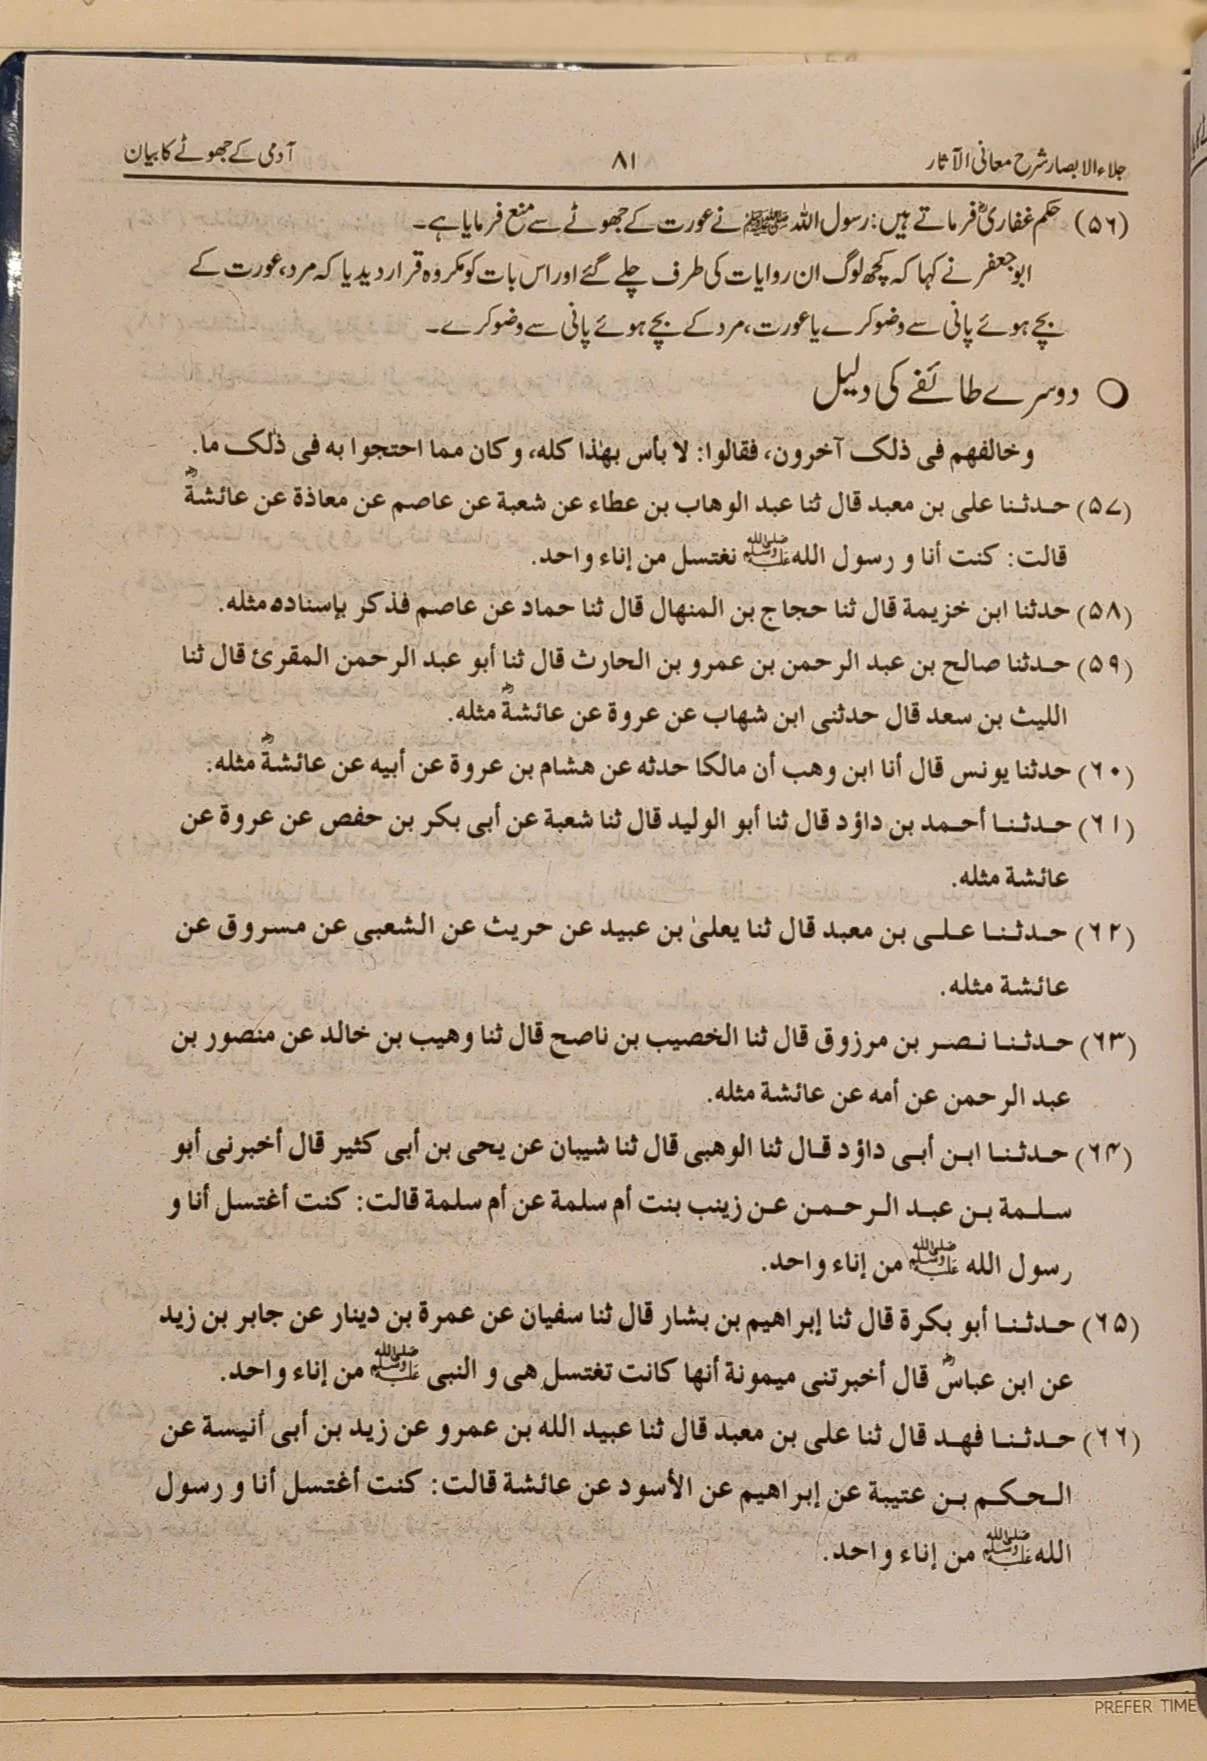 جلاء الابصار شرح معانی الآثار ۸۱ آدمی کے جھوٹے کا بیان
(۵۶) حکم غفاریؓ فرماتے ہیں: رسول اللہ ﷺ نے عورت کے جھوٹے سے منع فرمایا ہے۔
ابو جعفر نے کہا کہ کچھ لوگ ان روایات کی طرف چلے گئے اور اس بات کو مکروہ قرار دیدیا کہ مرد، عورت کے
بچے ہوئے پانی سے وضو کرے یا عورت، مرد کے بچے ہوئے پانی سے وضو کرے۔
○ دوسرے طائفے کی دلیل
وخالفهم فی ذلک آخرون، فقالوا: لا بأس بهٰذا کله، وکان مما احتجوا به فی ذلک ما.
(۵۷) حدثنا علی بن معبد قال ثنا عبد الوهاب بن عطاء عن شعبة عن عاصم عن معاذة عن عائشةؓ
قالت: کنت أنا و رسول الله ﷺ نغتسل من إناء واحد.
(۵۸) حدثنا ابن خزیمة قال ثنا حجاج بن المنهال قال ثنا حماد عن عاصم فذکر بإسناده مثله.
(۵۹) حدثنا صالح بن عبد الرحمن بن عمرو بن الحارث قال ثنا أبو عبد الرحمن المقرئ قال ثنا
اللیث بن سعد قال حدثنی ابن شهاب عن عروة عن عائشةؓ مثله.
(۶۰) حدثنا یونس قال أنا ابن وهب أن مالکا حدثه عن هشام بن عروة عن أبیه عن عائشةؓ مثله:
(۶۱) حدثنا أحمد بن داؤد قال ثنا أبو الولید قال ثنا شعبة عن أبی بکر بن حفص عن عروة عن
عائشة مثله.
(۶۲) حدثنا علی بن معبد قال ثنا یعلیٰ بن عبید عن حریث عن الشعبی عن مسروق عن
عائشة مثله.
(۶۳) حدثنا نصر بن مرزوق قال ثنا الخصیب بن ناصح قال ثنا وهیب بن خالد عن منصور بن
عبد الرحمن عن أمه عن عائشة مثله.
(۶۴) حدثنا ابن أبی داؤد قال ثنا الوهبی قال ثنا شیبان عن یحی بن أبی کثیر قال أخبرنی أبو
سلمة بن عبد الرحمن عن زینب بنت أم سلمة عن أم سلمة قالت: کنت أغتسل أنا و
رسول الله ﷺ من إناء واحد.
(۶۵) حدثنا أبو بکرة قال ثنا إبراهیم بن بشار قال ثنا سفیان عن عمرة بن دینار عن جابر بن زید
عن ابن عباسؓ قال أخبرتنی میمونة أنها کانت تغتسل هی و النبی ﷺ من إناء واحد.
(۶۶) حدثنا فهد قال ثنا علی بن معبد قال ثنا عبید الله بن عمرو عن زید بن أبی أنیسة عن
الحکم بن عتیبة عن إبراهیم عن الأسود عن عائشة قالت: کنت أغتسل أنا و رسول
الله ﷺ من إناء واحد.
PREFER TIME